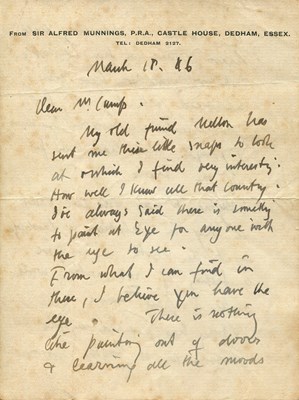 FROM SIR ALFRED MUNNINGS, P.R.A., CASTLE HOUSE, DEDHAM, ESSEX.
TEL: DEDHAM 2127.
March 18. 46
Dear Mr Camps.
My old friend Mellon has
sent me these little snaps to look
at & which I find very interesting.
How well I know all that country.
I've always said there is something
to paint at Eye for anyone with
the eye to see.
From what I can find in
these, I believe you have the
eye. There is nothing
like painting out of doors
& learning all the moods